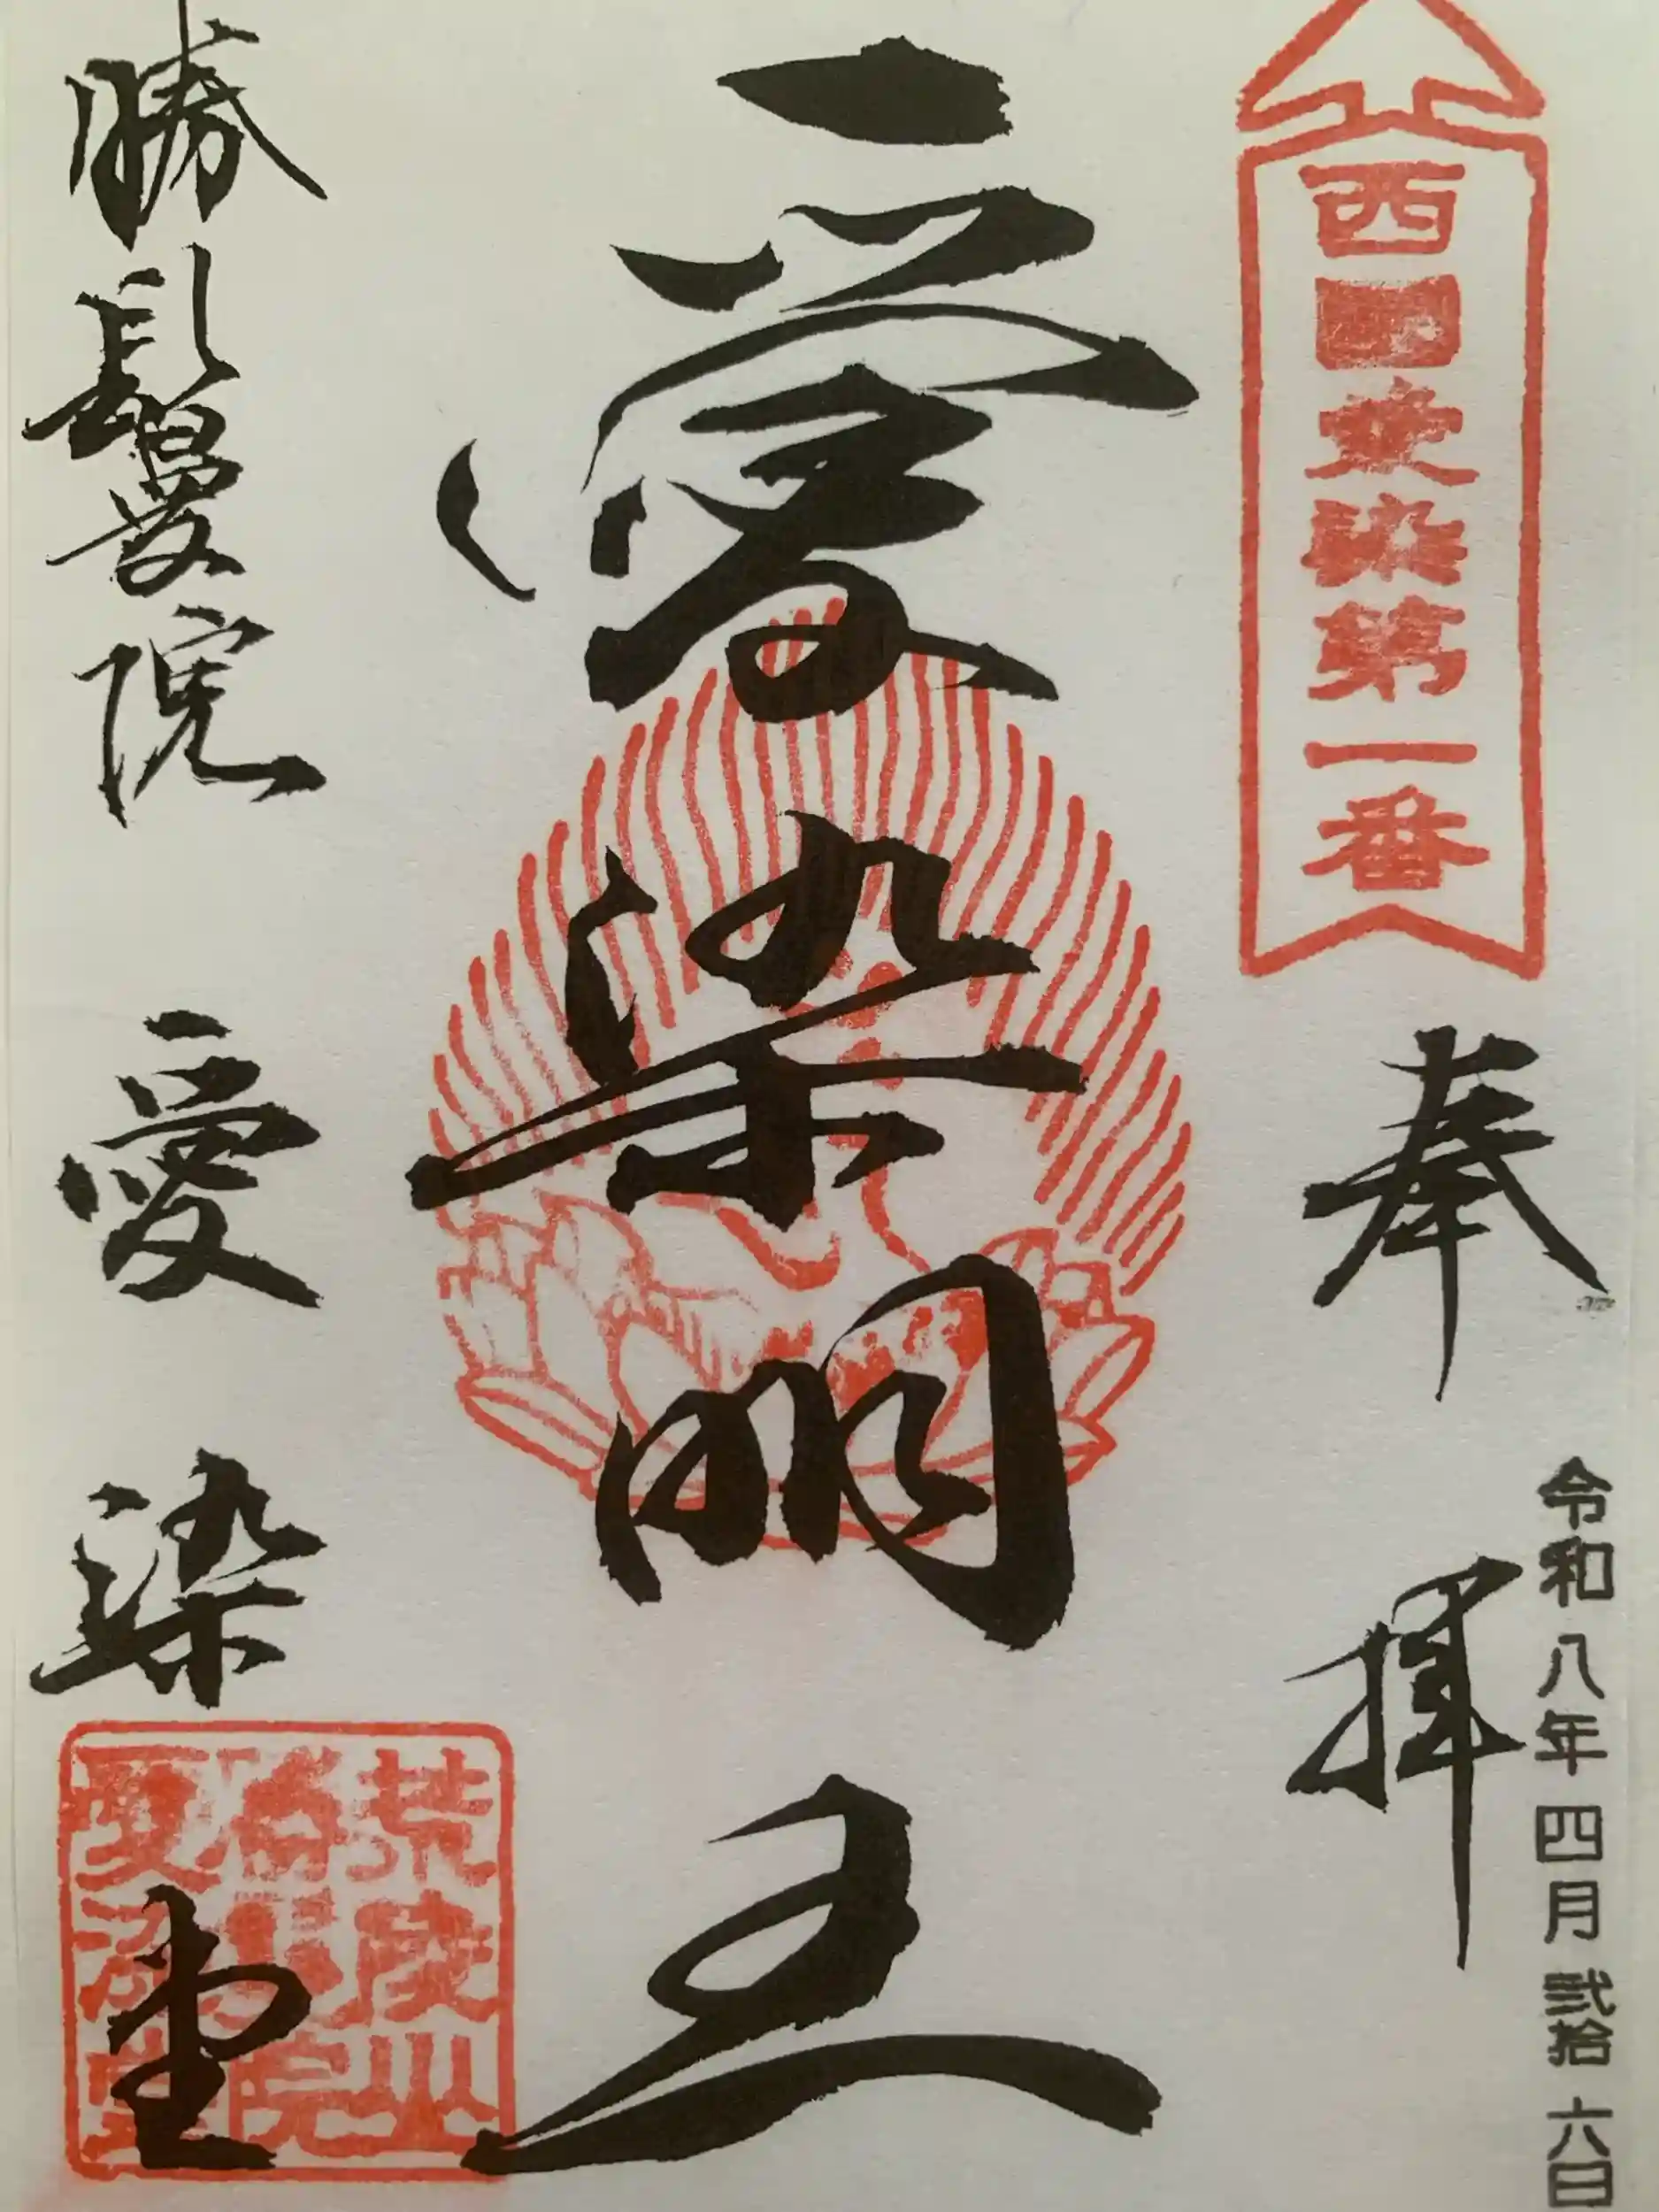 西国愛染第一番
奉拝
令和八年四月弐拾六日
愛染明王
勝鬘院
愛染堂
荒陵山
勝鬘院
愛染堂